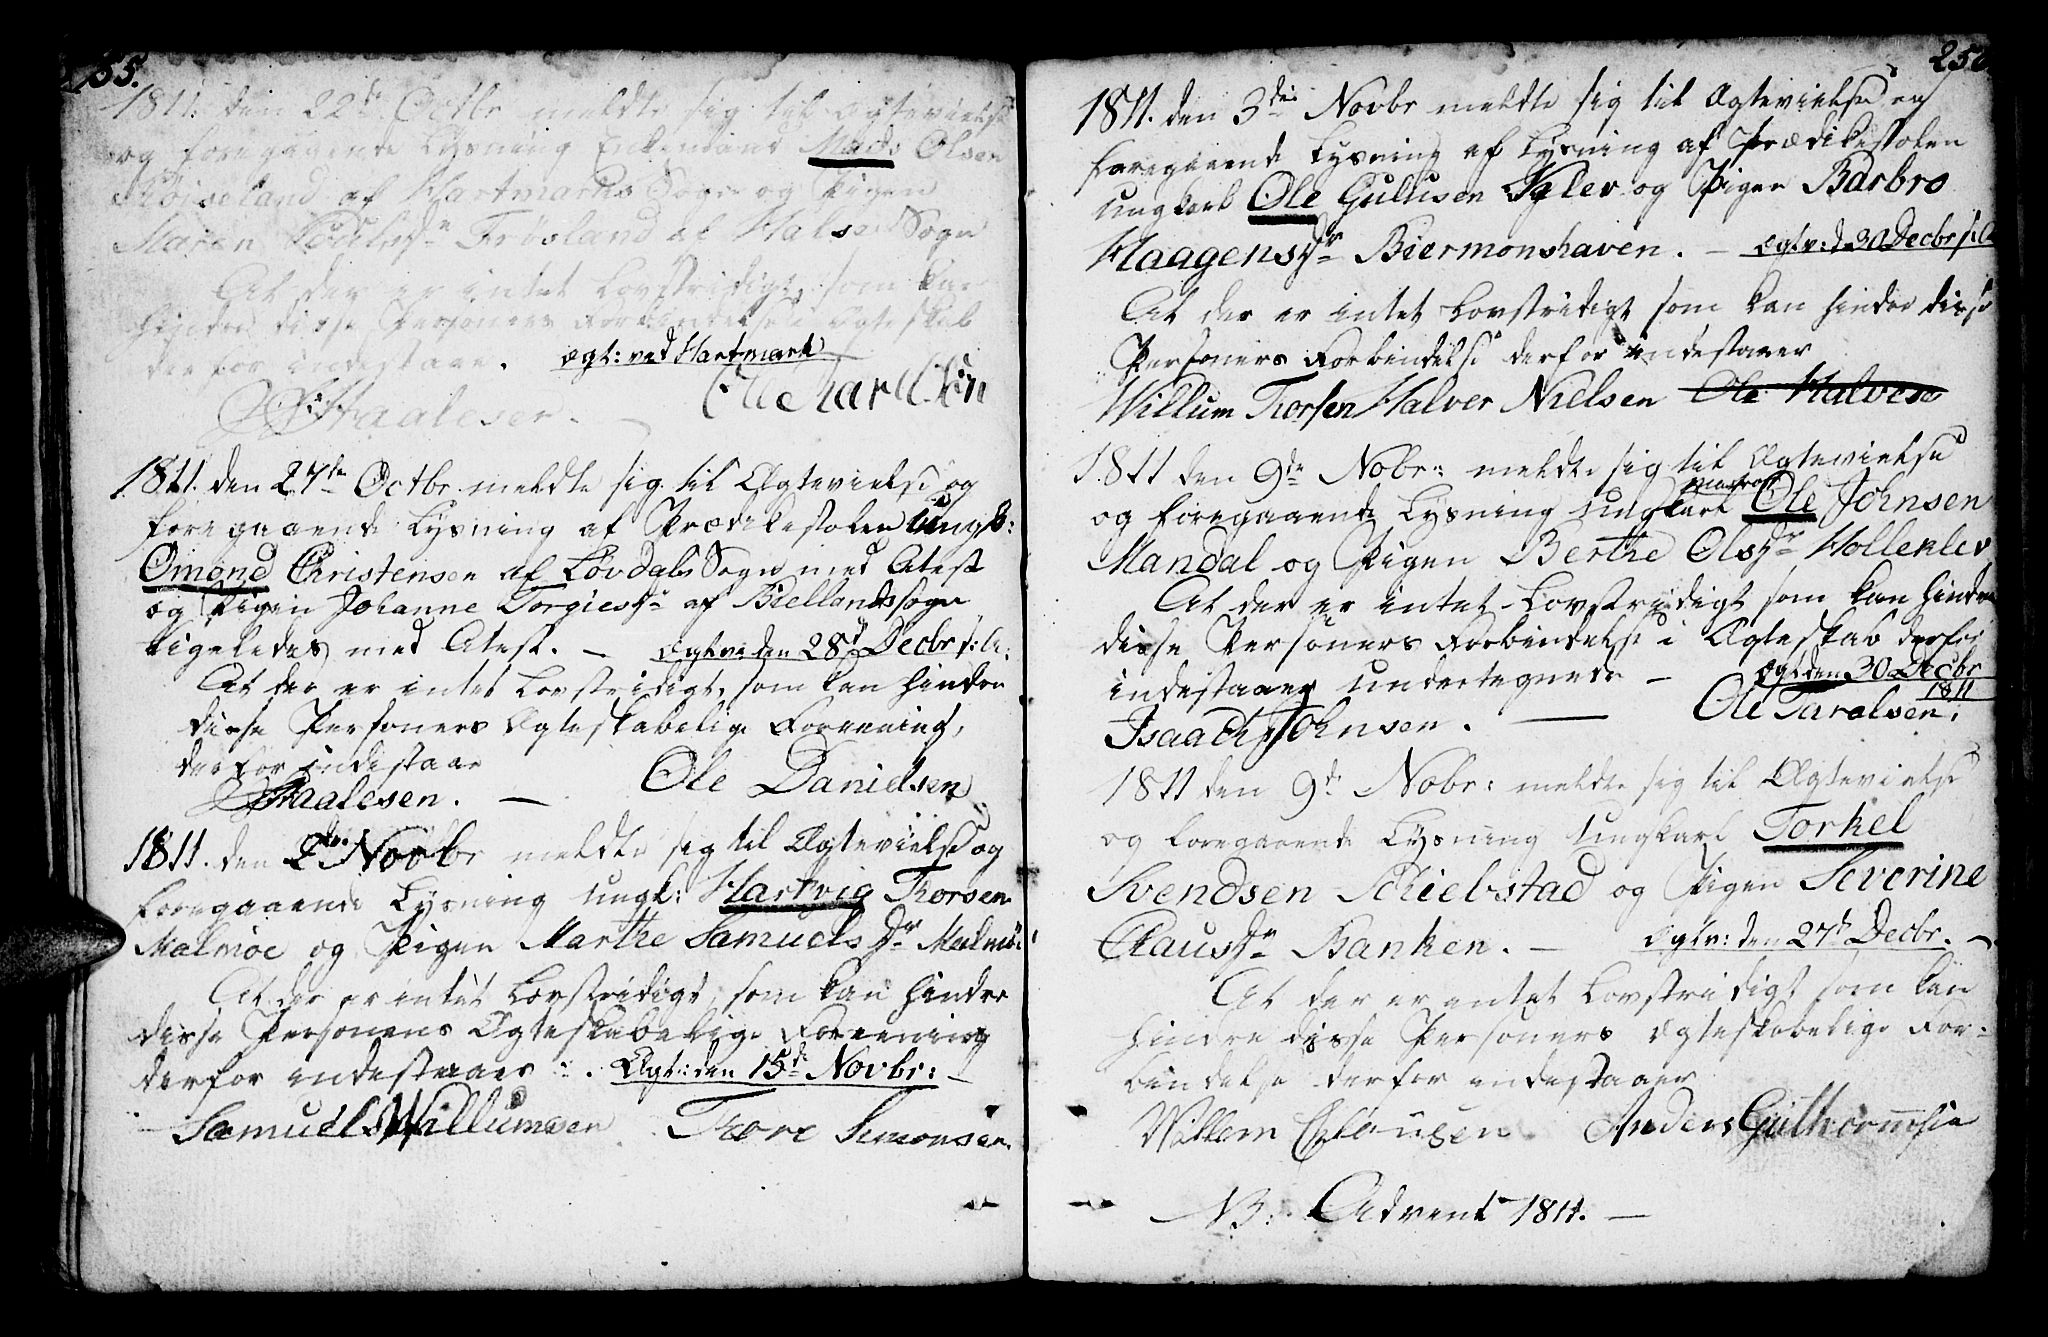 255.
1811. den 22de Octbr meldte sig til Ægtevielse
og foregaaende Lysning Enkemand Mads Olsen
Røiseland af Hartmarks Sogn og Pigen
Maren Poulsdr Frøsland af Halse Sogn
At der er intet Lovstridigt, som kan
hindre disse Personers Forbindelse i Ægteskab
derfor indestaaer. Ægt: ved Hartmark
Staalesen.
1811. den 27de Octbr meldte sig til Ægtevielse og
foregaaende Lysning af Prædikestolen Ungk:
Omond Christensen af Løvdals Sogn med Atest
og Pigen Johanne Torgiesdr af Biellands sogn
ligeledes med Atest. – Ægtv: den 28d Decbr s: A:
At der er intet Lovstridigt, som kan hindre
disse Personers Ægteskabelige Forening,
derfor indestaar
Staalesen. – Ole Danielsen
1811. den 2den Novbr meldte sig til Ægtevielse og
foregaaende Lysning Ungk: Hartvig Thorsen
Malmøe og Pigen Marthe Samuels Dr Malmøe
At der er intet Lovstridigt, som kan hindre
disse Personers Ægteskabelige Forening
derfor indestaaer. Ægt: den 15de Novbr: –
Samuel Willumsen Thore Simonsen.
256
1811. den 3die Novbr meldte sig til Ægtevielse og
foregaaende Lysning af Lysning af Prædikestolen
Ungkarl Ole Gulusen Vglev og Pigen Barbro
Haagensdr Biermonshaven. – Ægtv: d 30 Decbr s: A
At der er intet Lovstridigt som kan hindre disse
Personers Forbindelse derfor indestaaer
Willum Thorsen Halver Nielsen Ole Halvors
1811 den 9de Nobr: meldte sig til Ægtevielse
og foregaaende Lysning Ungkarl Matros Ole Johnsen
Mandal og Pigen Berthe Olsdr Hollenlev
At der er intet Lovstridigt som kan hindre
disse Personers Forbindelse i Ægteskab derfor
indestaaer undertegnede – Ægt den 30 Decbr 1811
Isaach Johnsen. – Ole Taralsen.
1811 den 9de Nobr: meldte sig til Ægtevielse
og foregaaende Lysning Ungkarl Torkel
Svendsen Schiebstad og Pigen Severine
Clausdr Banken. – Ægtv: den 27d Decbr. –
At der er intet Lovstridigt som kan
hindre disse Personers Ægteskabelige For-
bindelse derfor indestaaer
Willem Clausen Anders Gulthormsen
NB: Advent 1811. –